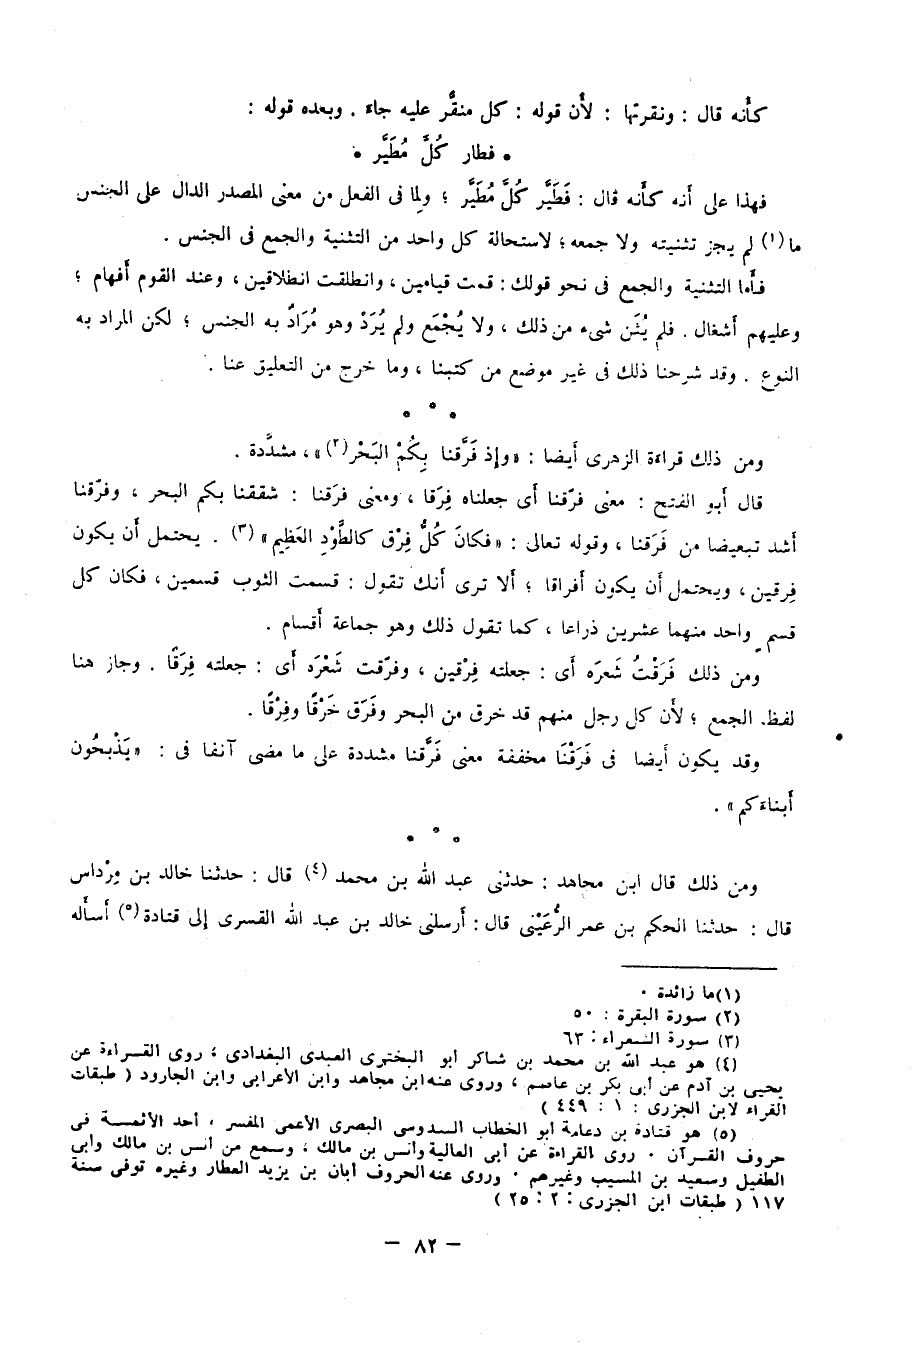 كأنه قال : ونقرتها : لأن قوله : كل منقَّر عليه جاء . وبعده قوله :
• فطار كُلَّ مُطَيَّر •
فهذا على أنه كأنه قال : فَطَيَّر كُلَّ مُطَيَّر ؛ ولما فى الفعل من معنى المصدر الدال على الجنس
ما(١) لم يجز تثنيته ولا جمعه؛ لاستحالة كل واحد من التثنية والجمع فى الجنس .
فأما التثنية والجمع فى نحو قولك : قمت قيامين ، وانطلقت انطلاقين ، وعند القوم أفهام ؛
وعليهم أشغال . فلم يُثَن شىء من ذلك ، ولا يُجْمَع ولم يُرَدْ وهو مُرَادٌ به الجنس ؛ لكن المراد به
النوع . وقد شرحنا ذلك فى غير موضع من كتبنا ، وما خرج من التعليق عنا .
ومن ذلك قراءة الزهرى أيضا : «وإذ فَرَّقنا بِكُمْ البَحْر(٢)» ، مشدَّدة .
قال أبو الفتح : معنى فرّقنا أى جعلناه فِرَقا ، ومعنى فرَقنا : شققنا بكم البحر ، وفرّقنا
أشد تبعيضا من فَرَقنا ، وقوله تعالى : «فكانَ كُلُّ فِرْق كالطَّوْدِ العَظِيم» (٣) . يحتمل أن يكون
فِرقين ، ويحتمل أن يكون أفراقا ؛ ألا ترى أنك تقول : قسمت الثوب قسمين ، فكان كل
قسم واحد منهما عشرين ذراعا ، كما تقول ذلك وهو جماعة أقسام .
ومن ذلك فَرَقْتُ شَعرَه أى : جعلته فِرْقين ، وفرّقت شَعْرَه أى : جعلته فِرَقًا . وجاز هنا
لفظ. الجمع ؛ لأن كل رجل منهم قد خرق من البحر وفَرَق خَرْقًا وفِرْقًا .
وقد يكون أيضا فى فَرَقْنَا مخففة معنى فَرَّقنا مشددة على ما مضى آنفا فى : «يَذْبحُون
أبناءَكم» .
ومن ذلك قال ابن مجاهد : حدثنى عبد الله بن محمد (٤) قال : حدثنا خالد بن مِرْداس
قال : حدثنا الحكم بن عمر الرُّعَيْنى قال : أرسلنى خالد بن عبد الله القسرى إلى قتادة(٥) أسأله
(١)ما زائدة .
(٢) سورة البقرة : ٥٠
(٣) سورة الشعراء : ٦٣
(٤) هو عبد الله بن محمد بن شاكر أبو البخترى العبدى البغدادى ؛ روى القراءة عن
يحيى بن آدم عن أبى بكر بن عاصم ، وروى عنه ابن مجاهد وابن الأعرابى وابن الجارود ( طبقات
القراء لابن الجزرى : ١ : ٤٤٩ )
(٥) هو قتادة بن دعامة أبو الخطاب السدوسى البصرى الأعمى المفسر ، أحد الأئمة فى
حروف القرآن . روى القراءة عن أبى العالية وأنس بن مالك ، وسمع من أنس بن مالك وأبى
الطفيل وسعيد بن المسيب وغيرهم . وروى عنه الحروف أبان بن يزيد العطار وغيره توفى سنة
١١٧ ( طبقات ابن الجزرى : ٢ : ٢٥ )
– ٨٢ –